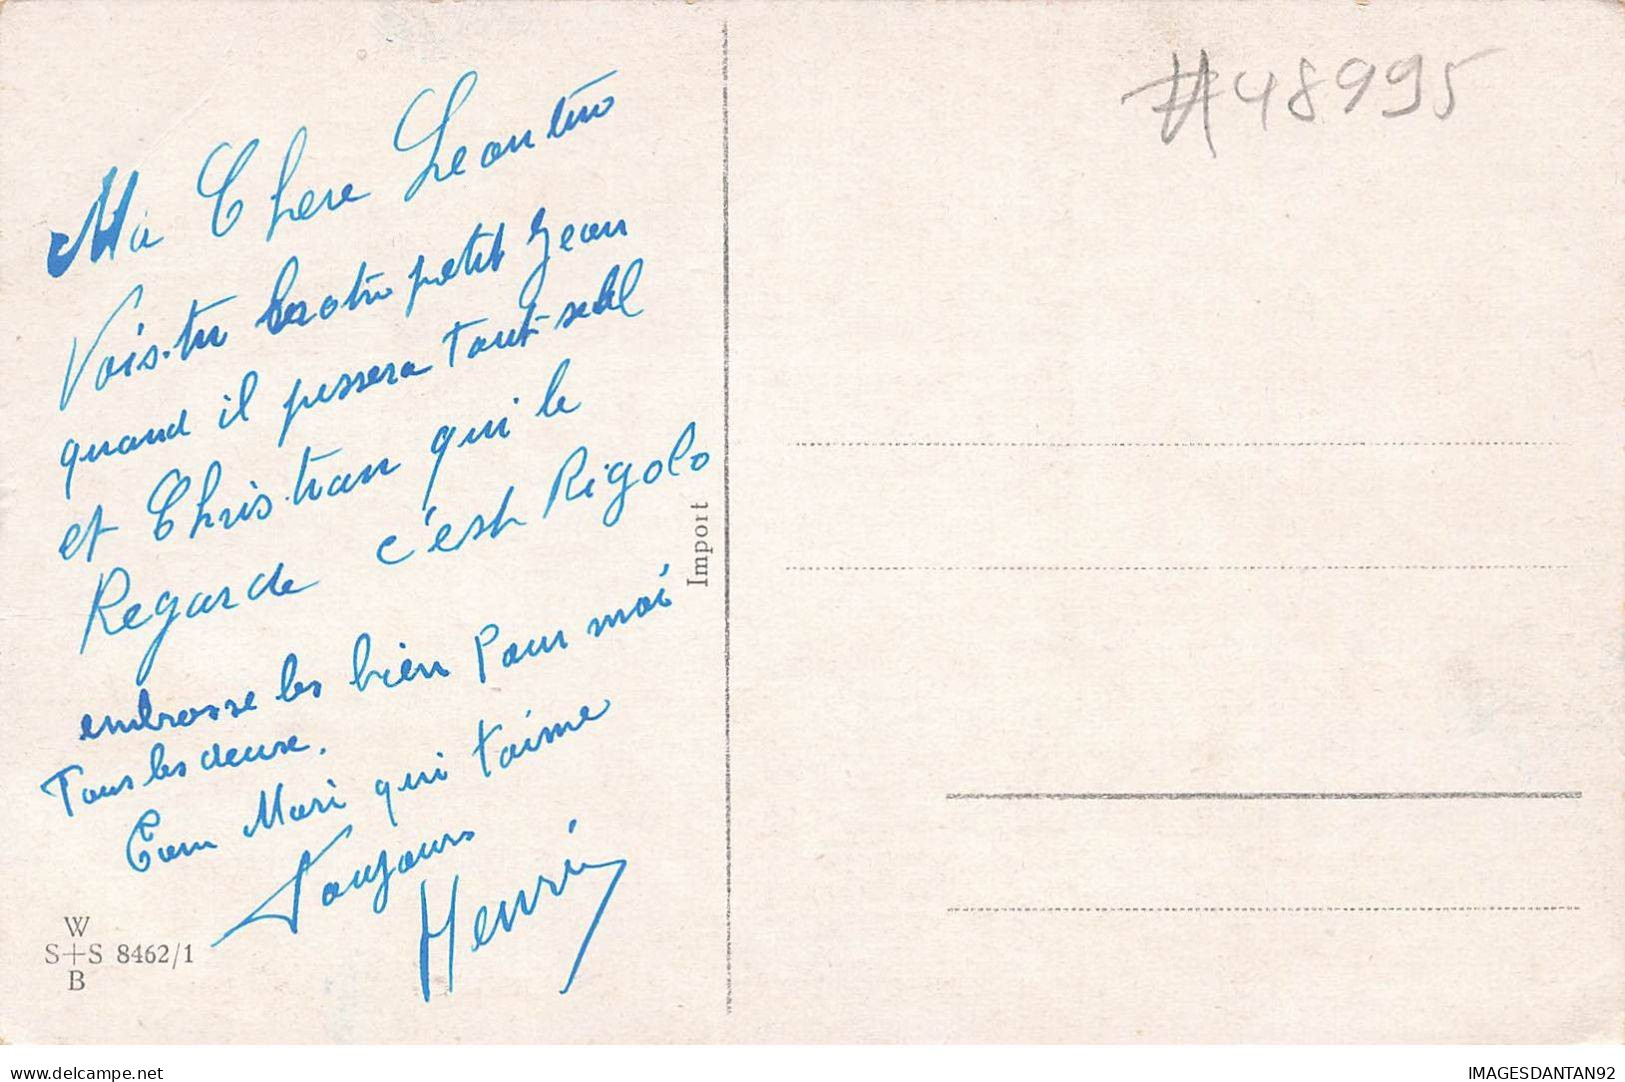 Ma Chere Leontine
Vois-tu notre petit Jean
quand il pissera Tout-seul
et Christian qui le
Regarde c'est Rigolo
embrasse les bien Pour moi
Tous les deux.
Ton Mari qui t'aime
Toujours
Henri
#48995
Import
W
S+S 8462/1
B
IMAGESDANTAN92
delcampe.net